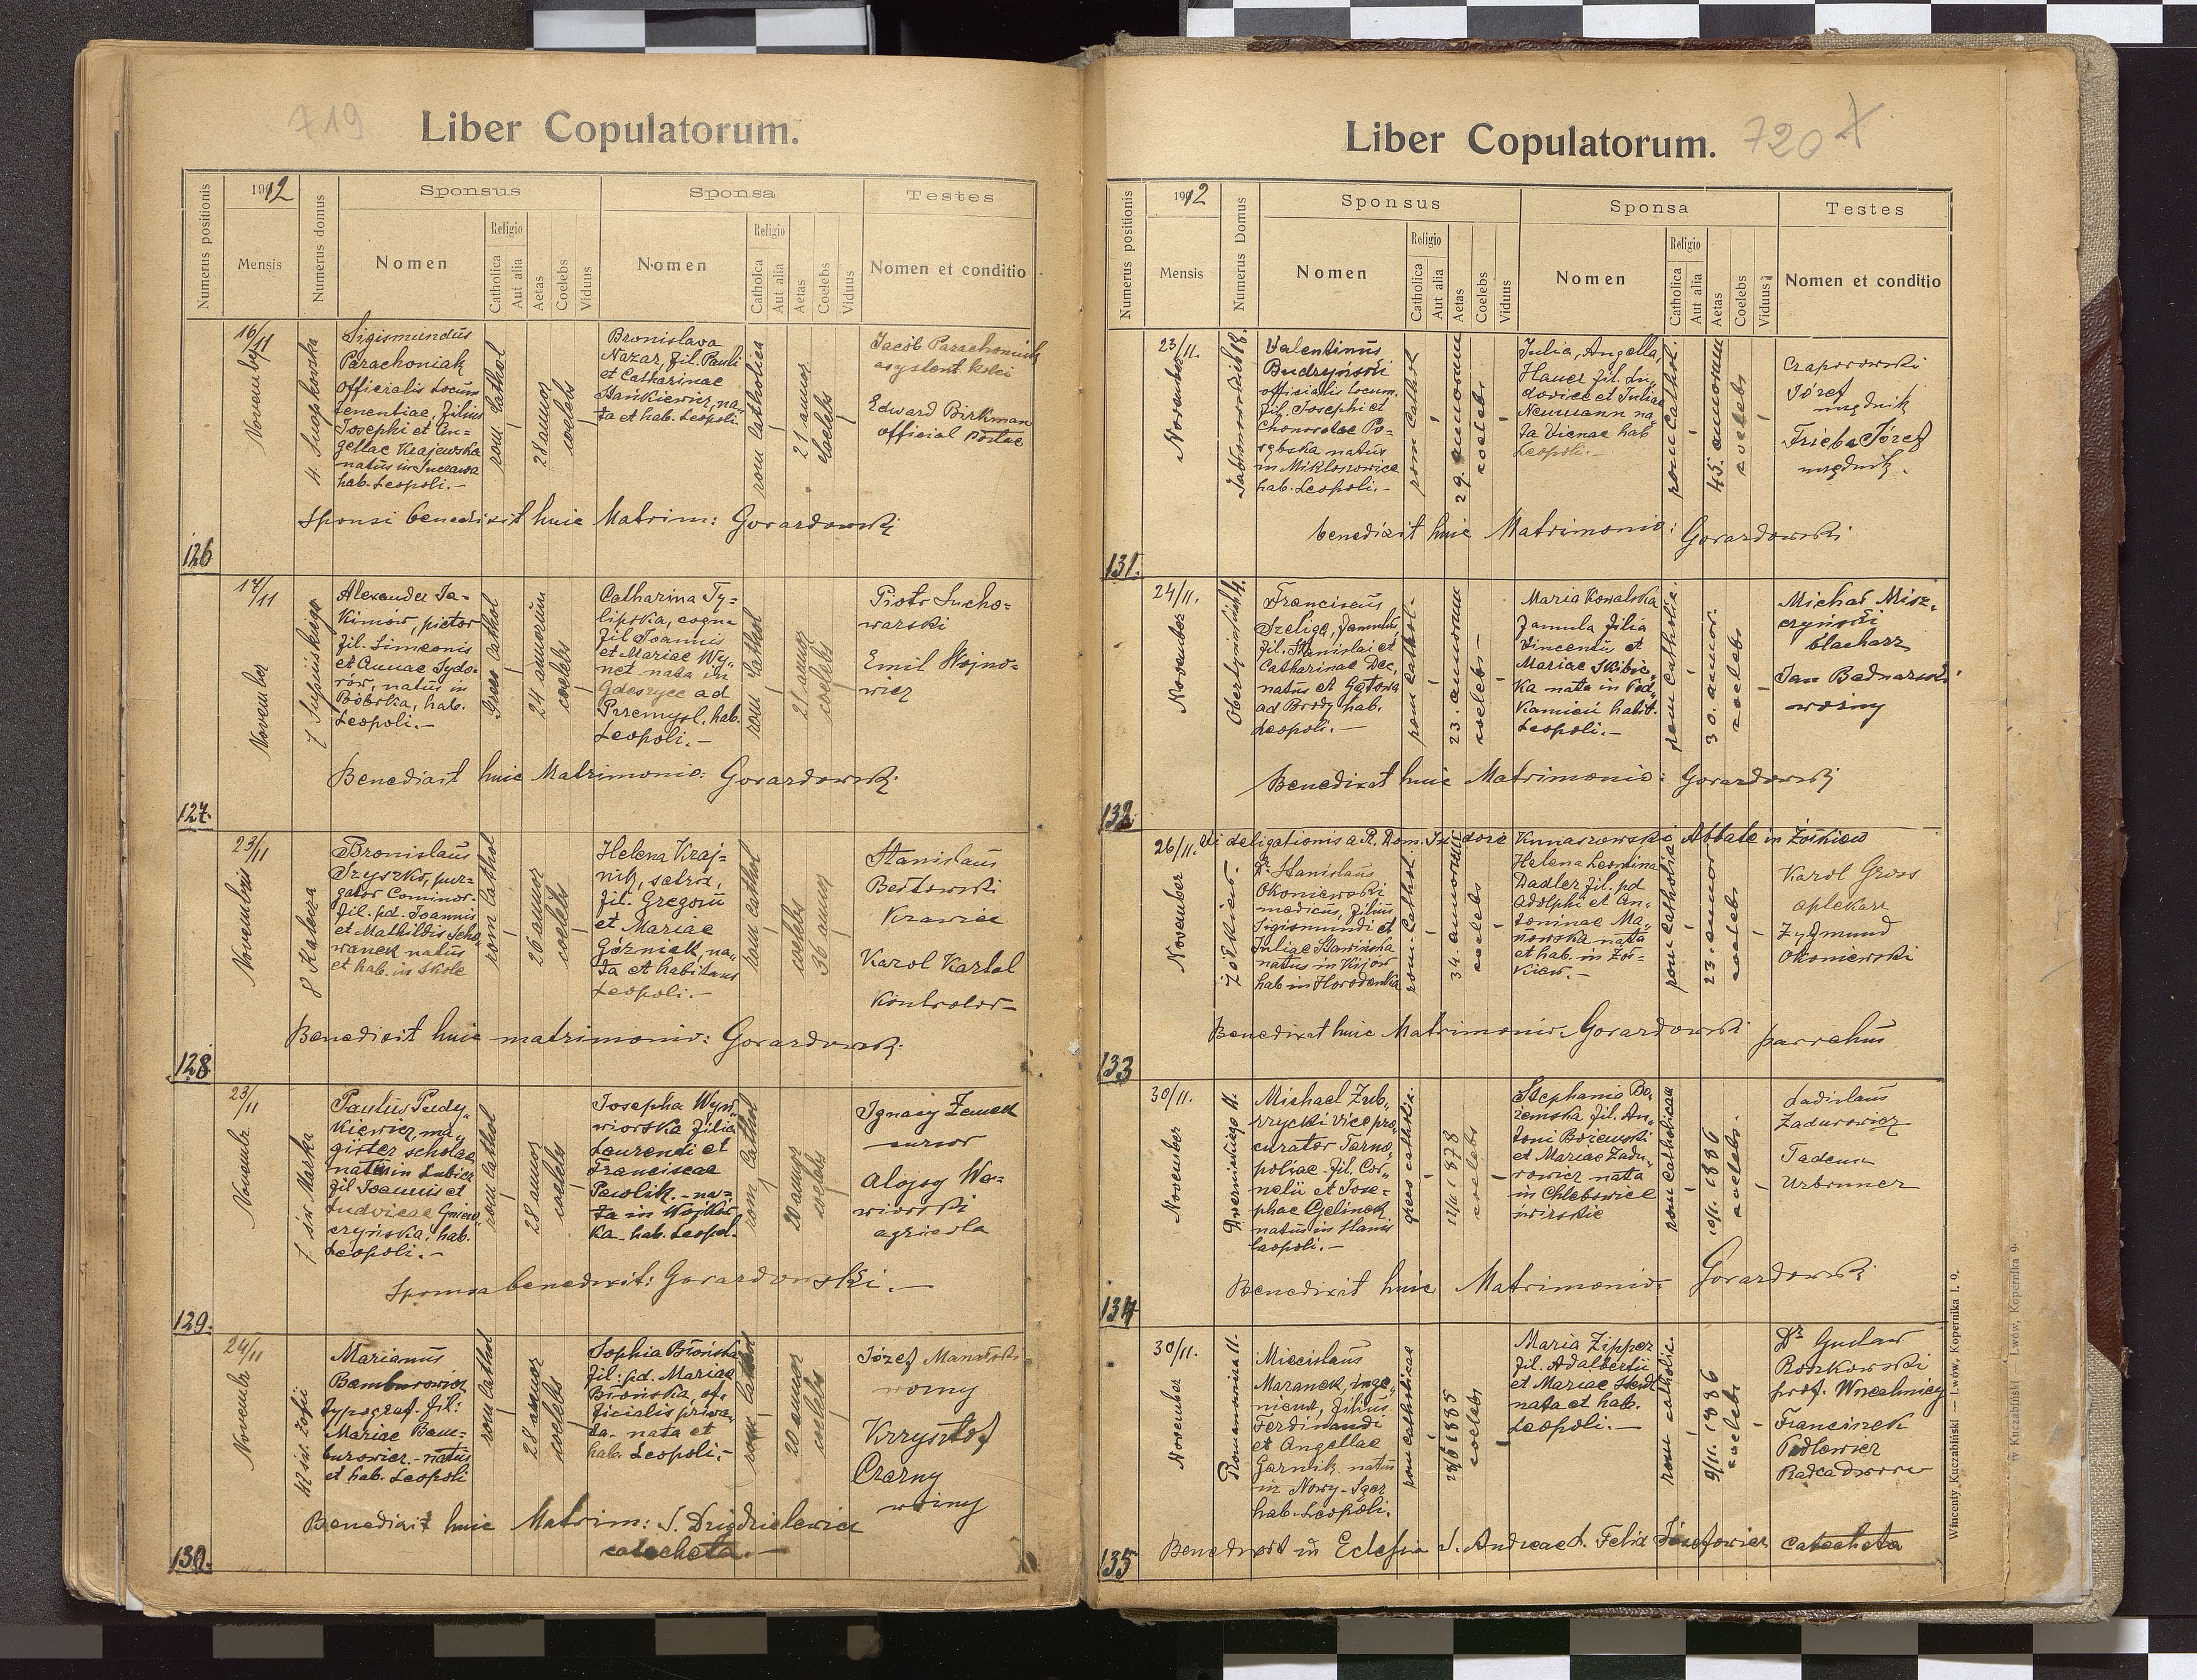 719
Liber Copulatorum.
Numerus positionis
1912
Mensis
Numerus domus
Sponsus
Nomen
Religio
Catholica
Aut alia
Aetas
Coelebs
Viduus
Sponsa
Nomen
Religio
Catholica
Aut alia
Aetas
Coelebs
Viduus
Testes
Nomen et conditio
126
16/11
November
4. Supińskiego
Sigismundus
Parachoniak
officialis Locum
tenentiae, filius
Josephi et An=
gellae Krajewska
natus in Suczawa
hab. Leopoli.-
rom Cathol
28 annor
coelebs
Bronislava
Nazar, fil. Pauli
et Catharinae
Stankiewicz, na=
ta et hab. Leopoli.
rom Catholica
21 annor
coelebs
Jacób Parachoniak
asystent kolei
Edward Birkman
official
Sponsi benedixit huic Matrim: Gorazdowski
127.
17/11
November
7 Supińskiego
Alexander Ja=
kimów, pictor
fil. Simeonis
et Annae Sydo=
rów, natus in
Bóbrka, hab.
Leopoli.-
Graec Cathol
24 annorum
coelebs
Catharina Ty=
lipska,
fil Joannis
et Mariae Wy=
net nata in
ad
Przemysl, hab.
Leopoli.-
rom Cathol
21 annor
coelebs
Piotr Sucho=
warski
Emil Wojno=
wicz
Benedixit huic Matrimonio: Gorazdowski
128.
23/11
Novembris
8 Kalecza
Bronislaus
Szyszko, pur=
gator Cominor.
fil. pd. Joannis
et Mathildis Scho=
wanek natus
et hab. in Skole
rom Cathol
26 annor
coelebs
Helena Kraj=
nik,
fil. Gregorii
et Mariae
Górniak, na=
ta et habitans
Leopoli.-
rom cathol
coelebs
36 annor
Stanislaus
Bełtowski
Krawiec
Karol Kartal
Kontrolor
Benedixit huic matrimonio: Gorazdowski
129.
23/11
Novembr.
7 św Marka
Paulus Pudy=
kiewicz, ma=
gister scholae
natus in Lubicz
fil Joannis et
Ludvicae Gniew=
czyńska, hab.
Leopoli.-
rom Cathol
28 annor
coelebs
Josepha Wyw=
wiorska filia
Laurendi et
Franciscae
Pawlik.- na=
ta in Wojków
ka. hab. Leopol.
rom Cathol
20 annor
coelebs
Ignacy Zemek
cursor
Alojzy We=
wiorski
agricola
Sponsa benedixit: Gorazdowski.-
130.
24/11
Novembr
42 św. Zofii
Marianus
Bamburowicz
typograf. fil:
Mariae Bam=
burowicz.- natus
et hab. Leopoli
rom Cathol
28 annor
coelebs
Sophia Błońska
fil: pd. Mariae
Błońska, of=
ficialis priva=
ta- nata et
hab. Leopoli.-
rom Cathol
20 annor
coelebs
Józef
woźny
Krzysztof
Czarny
woźny
Benedixit huic Matrim: J. Dzigdzielewicz
catecheta.-
720 X
Liber Copulatorum.
Numerus positionis
1912
Mensis
Numerus Domus
Sponsus
Nomen
Religio
Catholica
Aut alia
Aetas
Coelebs
Viduus
Sponsa
Nomen
Religio
Catholica
Aut alia
Aetas
Coelebs
Viduus
Testes
Nomen et conditio
131.
23/11.
November
Jabłonowskich 18.
Valentinus
Budzyński
officialis locum.
fil. Josephi et
Chonoratae Po=
rębska natus
in Mikloszowice
hab. Leopoli.-
rom Cathol
29. annorum
coelebs
Julia, Angella
Hauer fil. Lu=
dovici et Juliae
Neumann na
ta Vienae hab
Leopoli.-
rom Cathol.
45. annorum
coelebs
Czaporowski
Józef
urzędnik
Frieba Józef
urzędnik.
benedixit huic Matrimonio: Gorazdowski
132.
24/11.
November
Obertyńskich 4.
Franciscus
Szeliga, famulus
fil. Stanislai et
Catharinae Dec,
natus et Gatowa
ad Brody hab.
Leopoli.-
rom Cathol.
23. annorum
coelebs
Maria Kowalska
famula filia
Vincentis et
Mariae Skibic=
ka nata in Pod=
kamień habit.
Leopoli.-
rom Catholic.
30. annor.
coelebs
Michał Misz=
czyński
blacharz
Jan Bednarski
woźny
Benedixit huic Matrimonio: Gorazdowski
133
26/11. Vi deligationis a R. Dom. Isidore Kunaszowski Abbate in Żółkiew
November
Żółkiew.
Dr. Stanislaus
Okoniewski
medicus, filius
Sigismundi et
Juliae Sławińska
natus in Kijów
hab in Horodenka
rom. Cathol
34. annorum
coelebs
Helena Leontina
Dadlez fil. pd
Adolphi et An=
toninae Ma=
nowska nata
et hab. in Żół=
kiew.-
rom Catholic
23. annor
coelebs
Karol Gross
aptekarz
Zygmund
Okoniewski
Benedixit huic Matrimonio. Gorazdowski parochus
134
30/11.
November
Dwernickiego K.
Michael Zub=
rzycki Vice pro=
curator Tarno=
poliae- fil. Cor=
nelii et Jose=
phae Gelinek
natus in Stanis
Leopoli.-
graec catholic.
12/11 1878
coelebs
Stephania Bo=
żemska fil. An=
toni Bożewski
et Mariae Zadu=
rowicz nata
in Chlebowice
świrskie
rom Catholicae
10/1. 1886
coelebs.
Ladislaus
Zadurowicz
Tadeus
Urbanner
Benedixit huic Matrimonio: Gorazdowski
135
30/11.
November
Romanowicza 11.
Miecislaus
Maranek, inge=
nieur, filius
Ferdinandi
et Angellae
Garnik natus
in Nowy-Sącz
hab. Leopoli.
rom catholicae
28/6 1885
coelebs
Maria Zipper
fil. Adalbertii
et Mariae Heidl
nata et hab.
Leopoli.-
rom catholic.
9/11. 1886
coelebs
Dr Gustaw
Roszkowski
prof. Wszechnicy
Franciszek
Podlewicz
Radca dworu
Benedixit in Eclesia S. Andreae L. Felix Józefowicz Catecheta
Wincenty Kuczabiński — Lwów, Kopernika l. 9.
ty Kuczabiński Lwów, Kopernika 9.